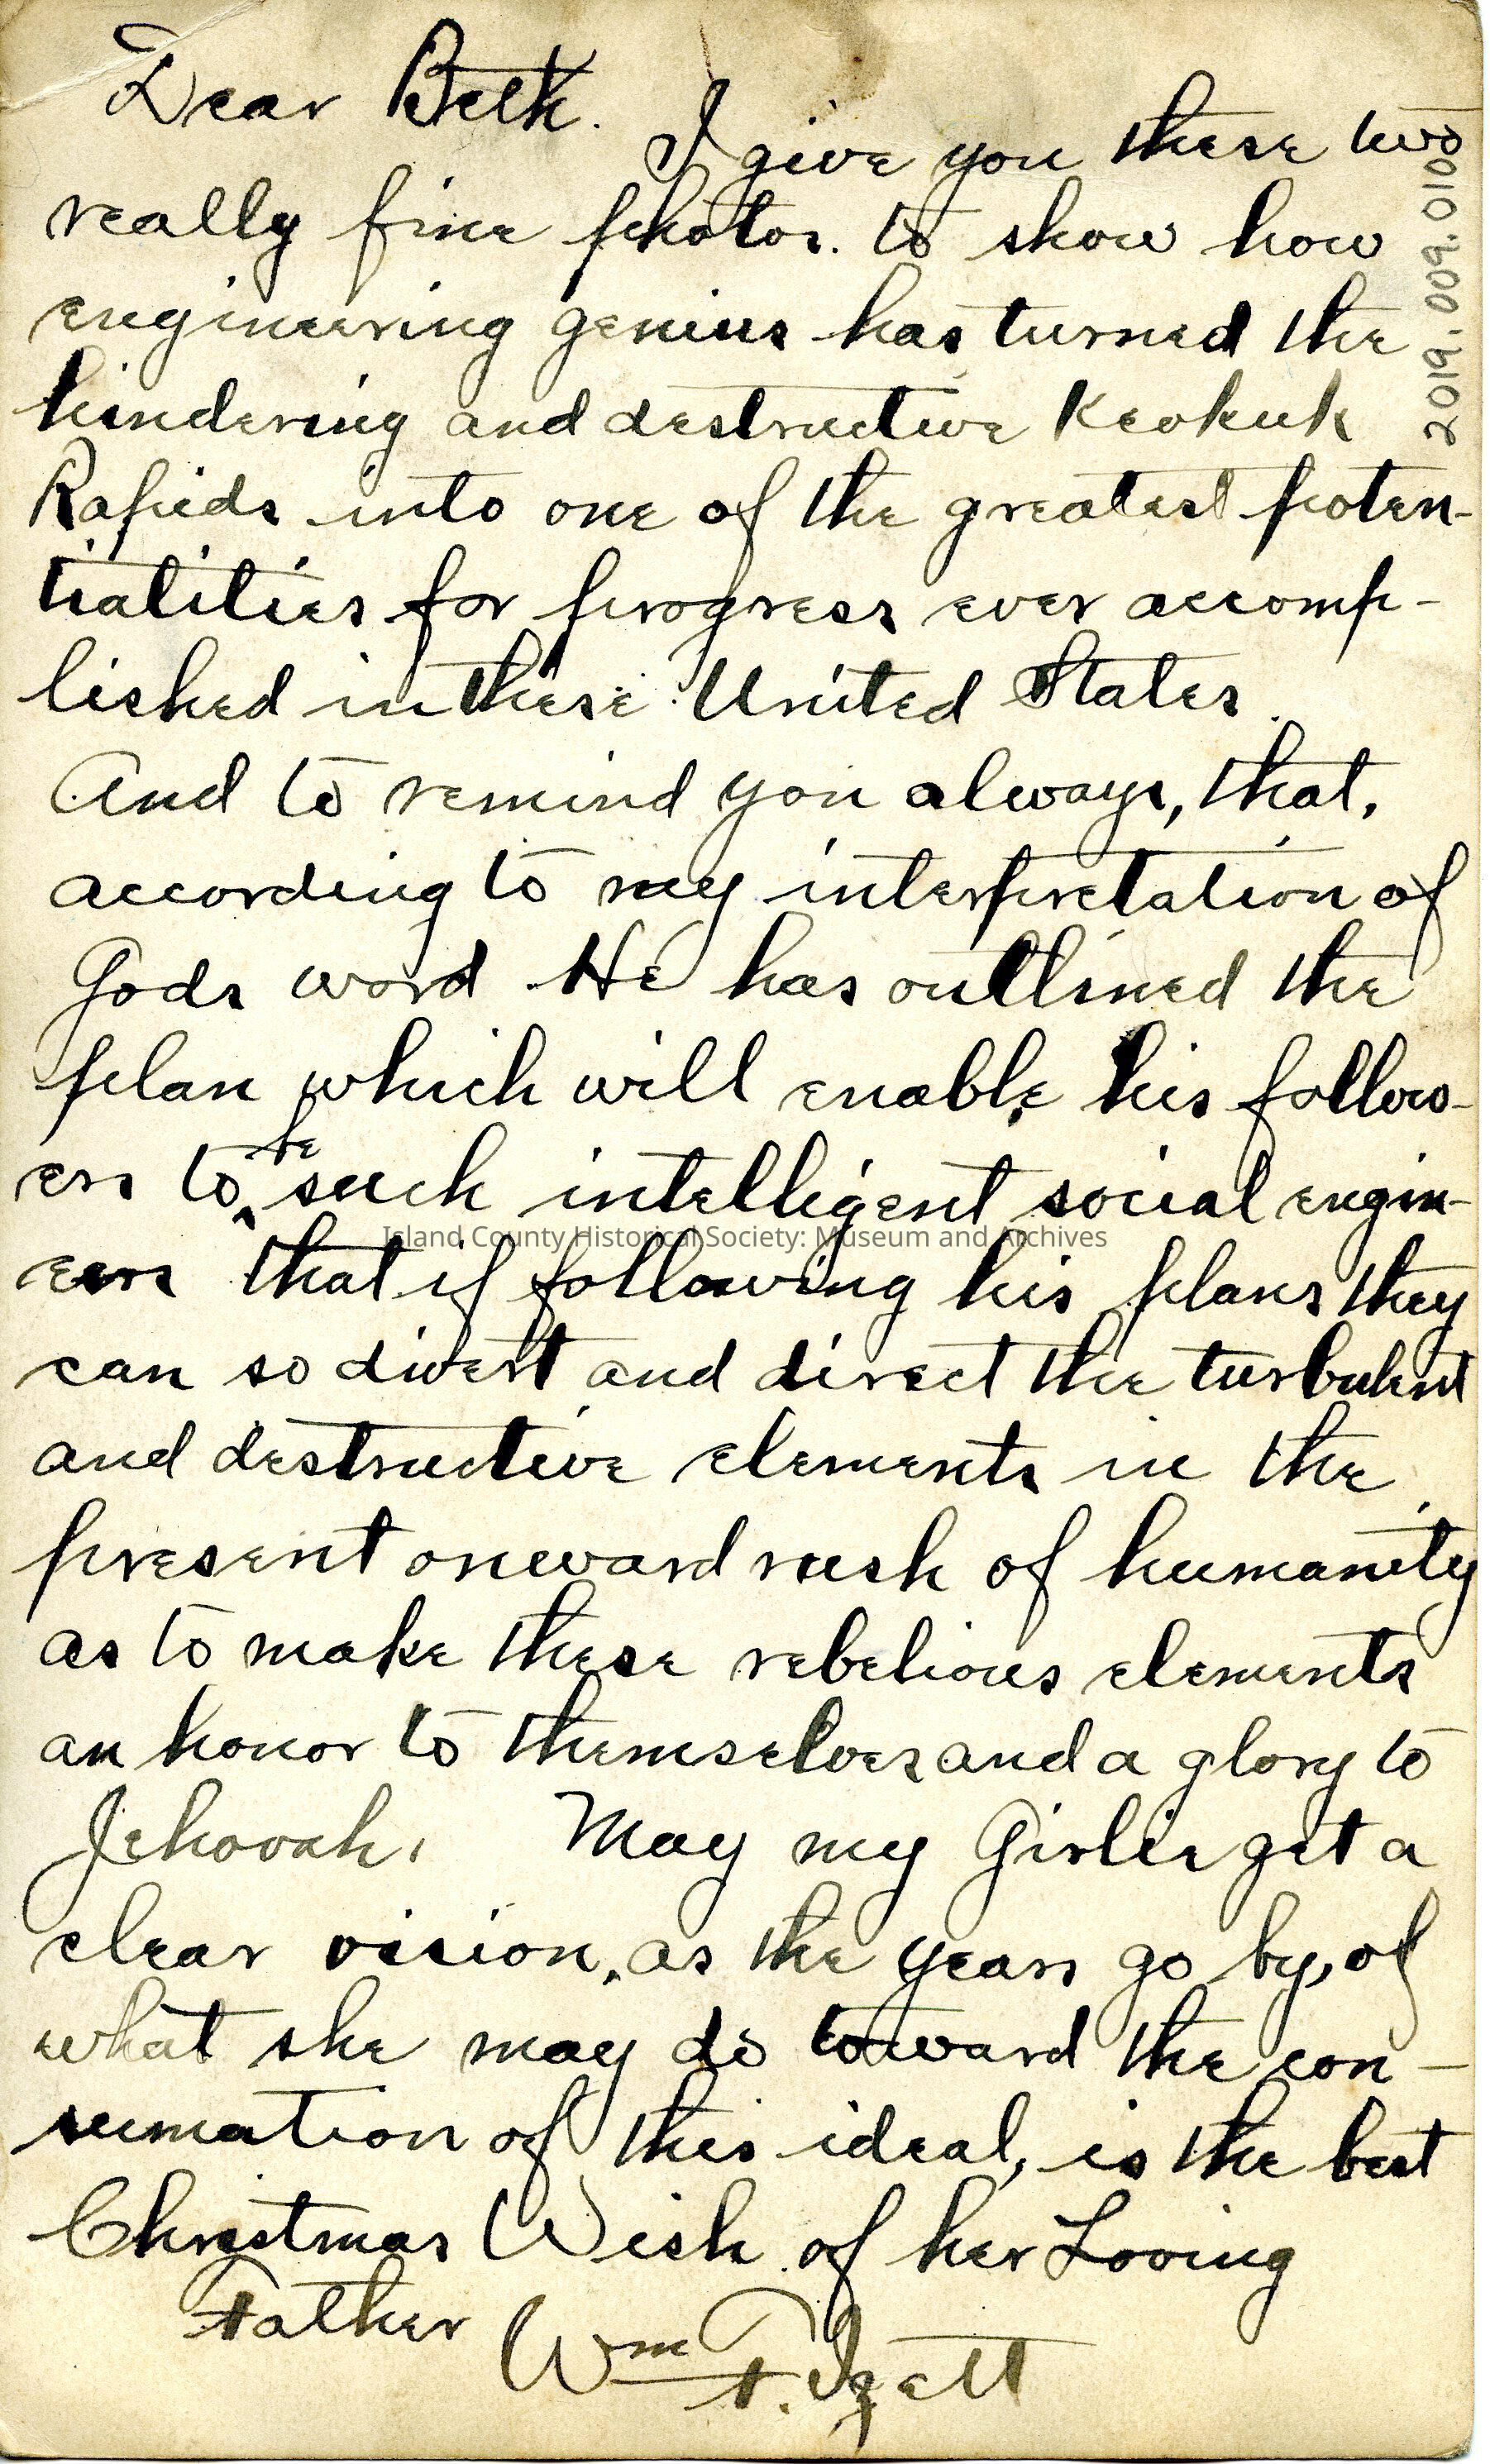 Dear Beth.
I give you these two
really fine photos. to show how
engineering genius has turned the
hindering and destructive Keokuk
Rapids into one of the greatest poten-
tialities for progress ever accomp-
lished in these United States.
And to remind you always, that,
according to my interpretation of
Gods word He has outlined the
plan which will enable his follow-
ers to be such intelligent social engin-
eers that if following his plans they
can so divert and direct the turbulent
and destructive elements in the
present onward rush of humanity
as to make these rebelious elements
an honor to themselves and a glory to
Jehovah. May my Girlie get a
clear vision, as the years go by, of
what she may do toward the con-
sumation of this ideal, is the best
Christmas Wish of her Loving
Father Wm
2019.009.010
Island County Historical Society: Museum and Archives